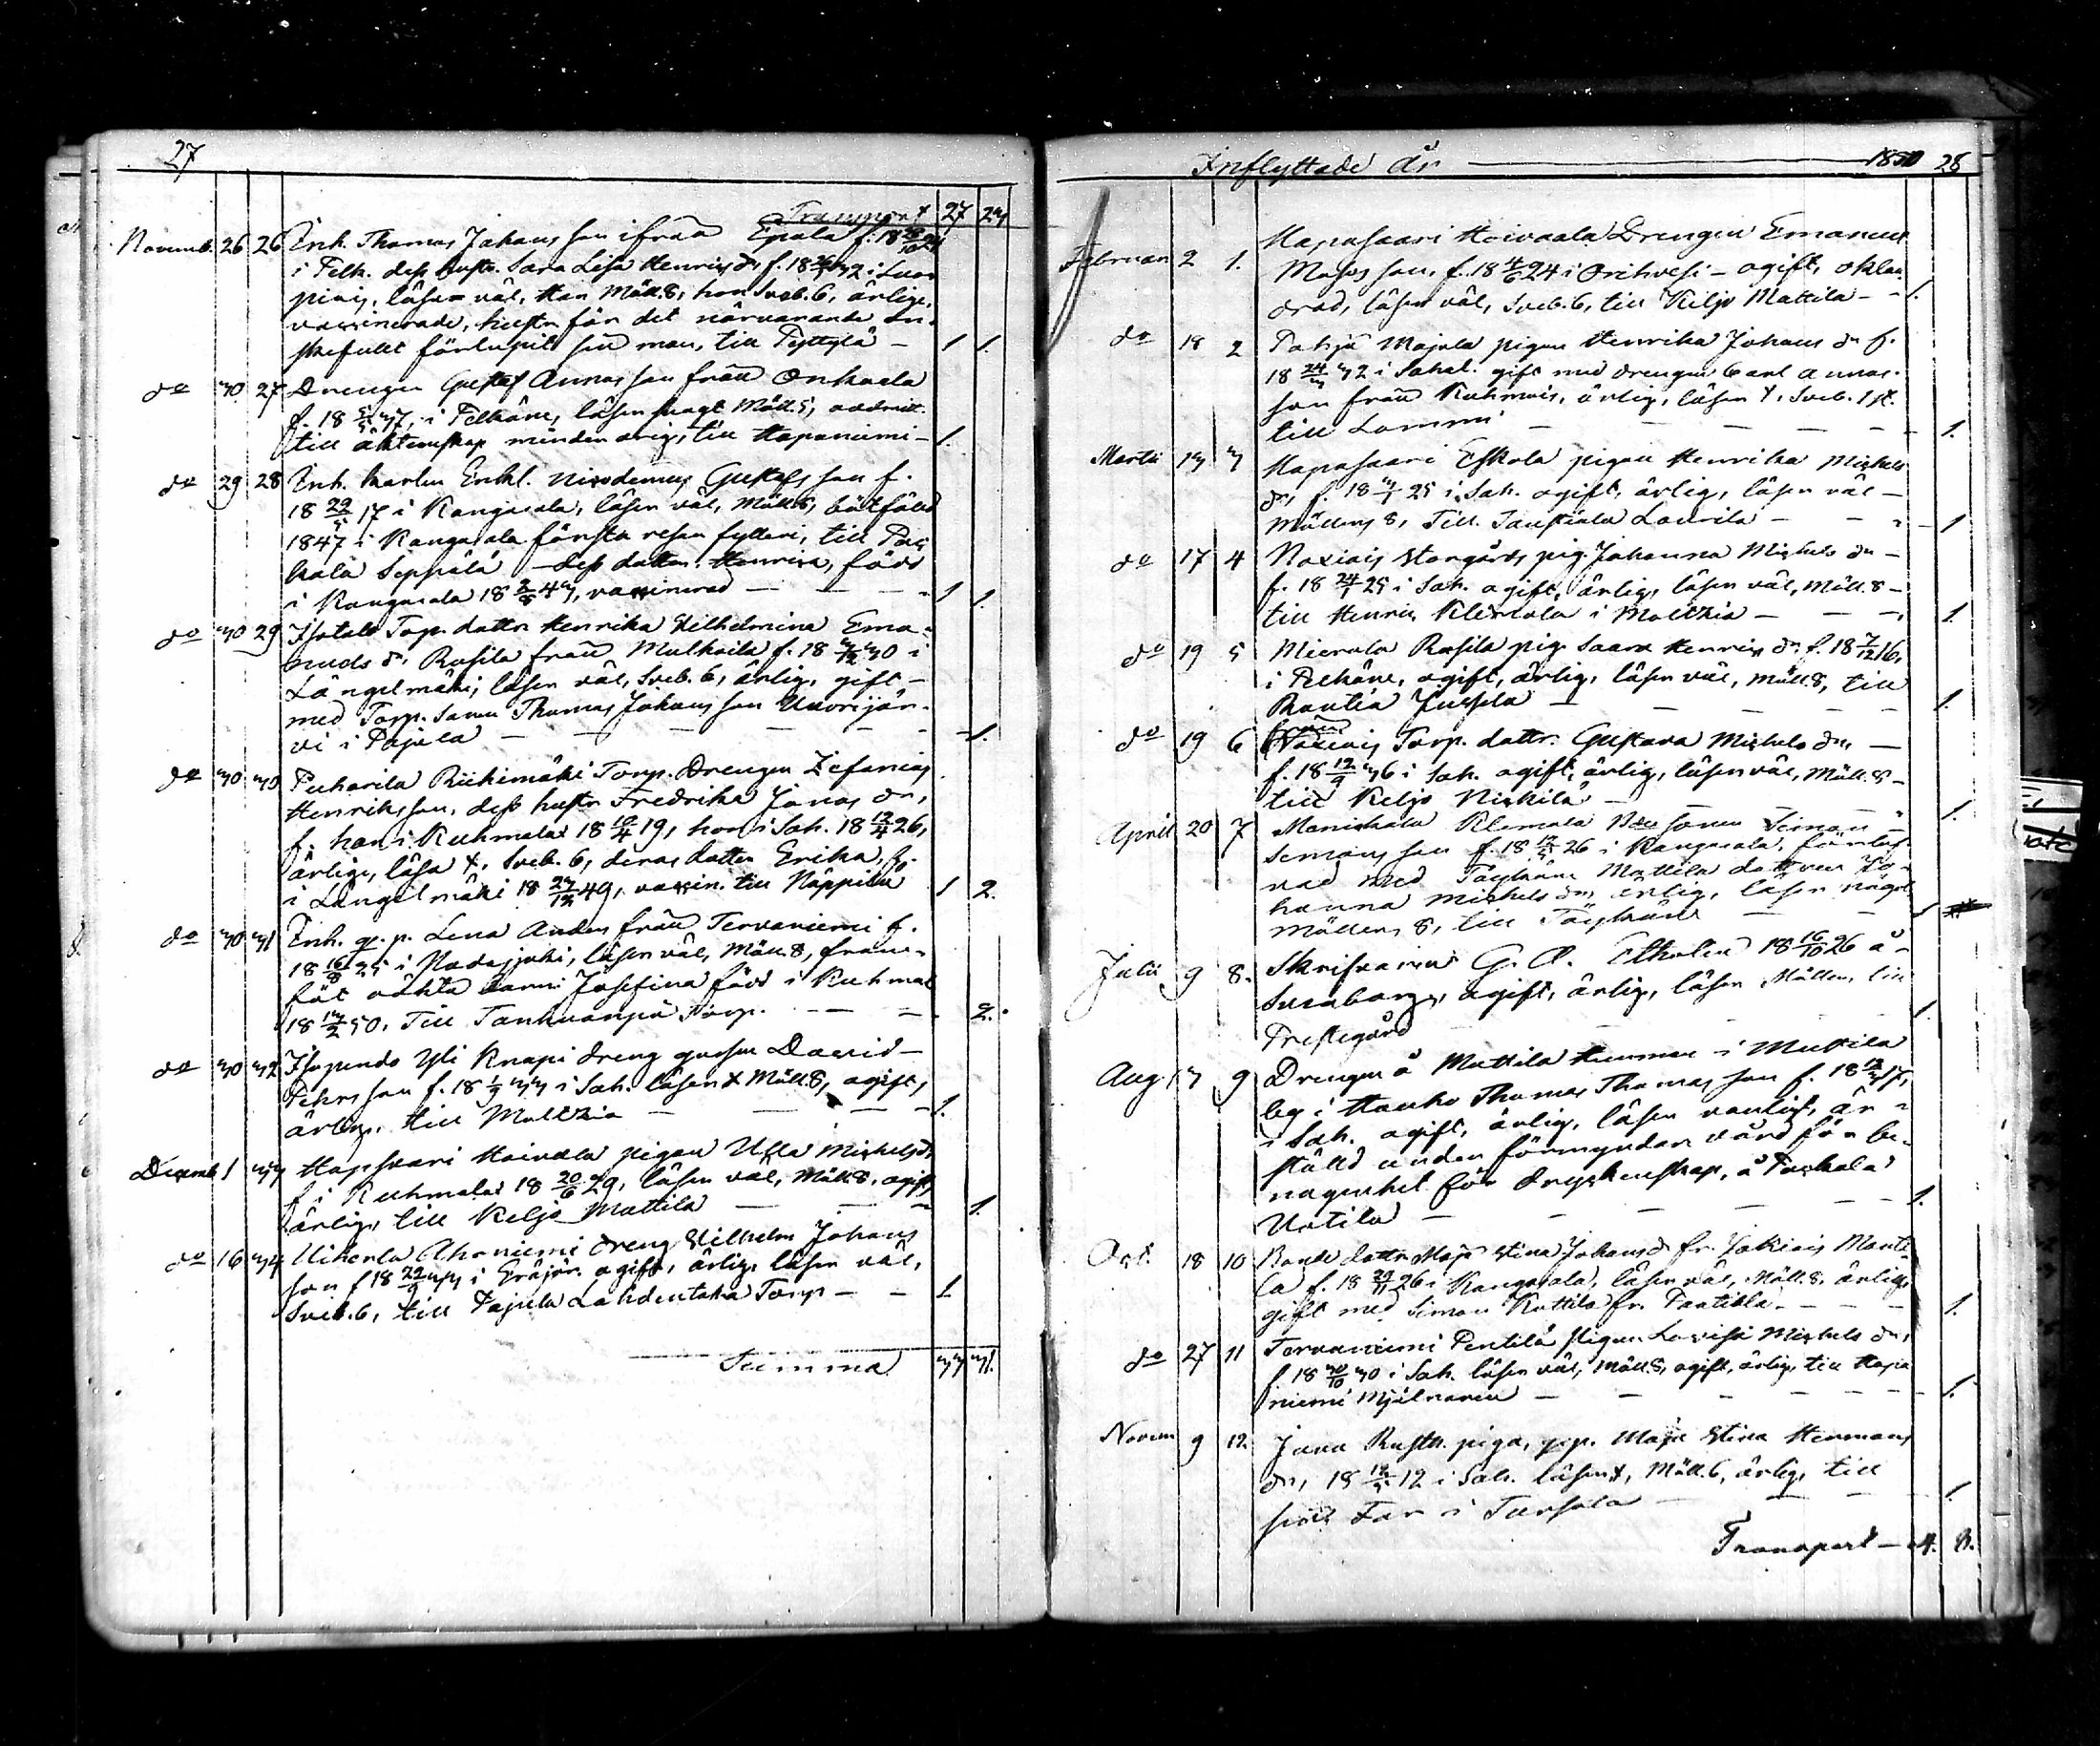 27
Transport 27 23
Novemb. 26 26 Inh. Thomas Johansson ifrån Epala f. 18
i Pelk. dess hustr. Sara Lisa Henriksdr f. 18 32 i Luo
piois, läser väl, han Möll. 8, hon Sveb. 6, ärliga,
vaccinerade, hustr för det närvarande
förlupit sin man, till Pyttylä – 1 1.
do 30 27 Drengen Gustaf Annasson från Onkaala
f. 18 5/5 37, i Pelkäne, läser svagt Möll. 5,
till äktenskap minderårig, till Haponiemi – 1.
do 29 28 Inh. karlen Enkl. Nicodemus Gustafsson f.
18 29/5 17 i Kangasala, läser väl, Möll. 8, bötfäld
1847 i Kangasala första resan fylleri, till Pac
kala Seppälä – dess dotter Henrica, född
i Kangasala 18 2/8 43, vaccinerad – – – 1 1.
do 30 29 Isotalo Torp. dottr Henrika Wilhelmina Ema-
nuels dr Rusila från Mulkoila f. 18 3/12 30 i
Längelmäki, läser väl, Sveb. 6, ärlig, gift –
med Torp. sonen Thomas Johansson Vuorijär-
vi i Pajula – – – – – 1.
do 30 30 Puharila Riihimäki Torp. Drengen Zefanias
Henriksson, dess hustr Fredrika Jonas dr,
f. han i Kuhmalax 18 10/4 19, hon i Sah. 18 12/4 26,
ärliga, läsa x, Sveb. 6, deras dotter Erika, f.
i Längelmäki 18 23/12 49, vaccin. till Näppilä 1 2.
do 30 31 Inh. qv. p. Lena Anders från Tervaniemi f.
18 16/8 25 i Padasjoki, läser väl, Möll. 8, fram-
föt oäkta barn Josefina född i Kuhmal
18 13/2 50. Till Tankvanpä Torp. – – – 2.
do 30 32 Isopendo Yli Knapi dreng gossen David –
Pehrsson f. 18 1/9 33 i Sah. läser x Möll. 8, ogift,
ärlig, till Moltzia – – – 1.
Decemb. 1 33 Hapasaari Hoivala pigan Ulla Michelsdr.
f. i Kuhmalax 18 20/6 29, läser väl, Möll. 8, ogift,
ärlig, till Keljo Mattila – – – 1.
do 16 34 Uiherla Ahoniemi dreng Wilhelm Johans
son f 18 29/9 33 i Eräjär. ogift, ärlig, läser väl,
Sveb. 6, till Pajula Lahdentaka Torp – – 1
Summa 33 31.
Inflyttade år 1850 28
Februari 2 1. Hapasaari Hoivaala Drengen Emanuel
Mosesson, f. 18 4/6 24 i Orihvesi – ogift, oklan
drad, läser väl, Sveb. 6, till Keljo Mattila – – 1.
do 18 2 Pohja Majala pigan Henrika Johans dr f.
18 24/3 32 i Sahal. gift med drengen Carl Annas-
son från Kuhmois, ärlig, läser x, Sveb. 1 st.
till Lammi – – – – – 1.
Martii 13 3 Hapasaari Eskola pigan Henrika Michels
dr, f. 18 25 i Sah. ogift, ärlig, läser väl –
Möllers 8, Till. Taustiala Laurila – – – 1
do 17 4 Noxiais Storgårds pig. Johanna Michels dr –
f. 18 24/1 25 i Sah. ogift, ärlig, läser väl, Möll. 8 –
till Henric Klemola i Moltzia – – – 1.
do 19 5 Mierola Rusila pig. Saara Henrics dr f. 18 7/12 16,
i Pelkäne, ogift, ärlig, läser väl, Möll. 8, till
Rautia Jussila – – – – 1.
do 19 6 från Noxiais Torp. dottr. Gustava Michels dr, –
f. 18 12/9 36 i Sah. ogift, ärlig, läser väl, Möll. 8 –
till Keljo Nickilä – – – – 1.
April 20 7 Manickala Klemola sonen Simon
Simonsson f. 18 26 i Kangasala, förlof-
vad med Töyhänä Mattila dottren Jo-
hanna Michels dr, ärlig, läser någ.
Möllers 8, till Töyhänä – – 1
Julii 9 8. Skrifvaren G. A. Etholen 18 16/10 26 å
Sveaborg, ogift, ärlig, läser Möllers, till
Prestegård – – – 1.
Aug. 13 9 Drengen å Mattila Hemman i Mustila
by i Hauho Thomas Thomasson f. 18 12/3 17,
i Sah. ogift, ärlig, läser vanligt, är
ställd under förmyndare vård för be-
nägenhet för dryckenskap, å Packala
Untila – – – – 1.
Oct. 18 10 Bonde dottr Maja Stina Johansdr fr. Jakiais Manti
la f. 18 29/11 26 i Kangasala, läser väl, Möll. 8, ärlig,
gift med Simon Kuttila fr. Tantikla – – – 1.
do 27 11 Tervaniemi Pentilä pigan Lovisa Michels dr,
f 18 30/10 30 i Sah. läser väl, Möll. 8, ogift, ärlig, till Hapa
niemi Mjölnaren – – – – – 1.
Novem 9 12. Java Rusth. piga, qvp. Maja Stina Hermans
dr, 18 12 i Sah. läser x, Möll. 6, ärlig, till
sin Far i Tursola – – – 1.
Transport – 4. 8.